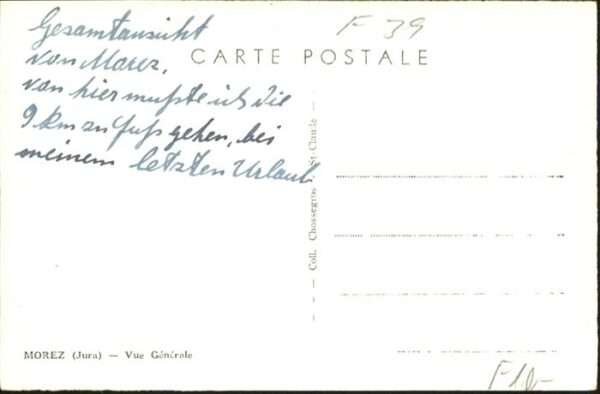 F 39
CARTE POSTALE
Gesamtansicht
von Morez,
von hier mußte ich die
9 km zu fuß gehen, bei
meinem letzten Urlaub
Coll. Chossegros St-Claude
MOREZ (Jura) — Vue Générale